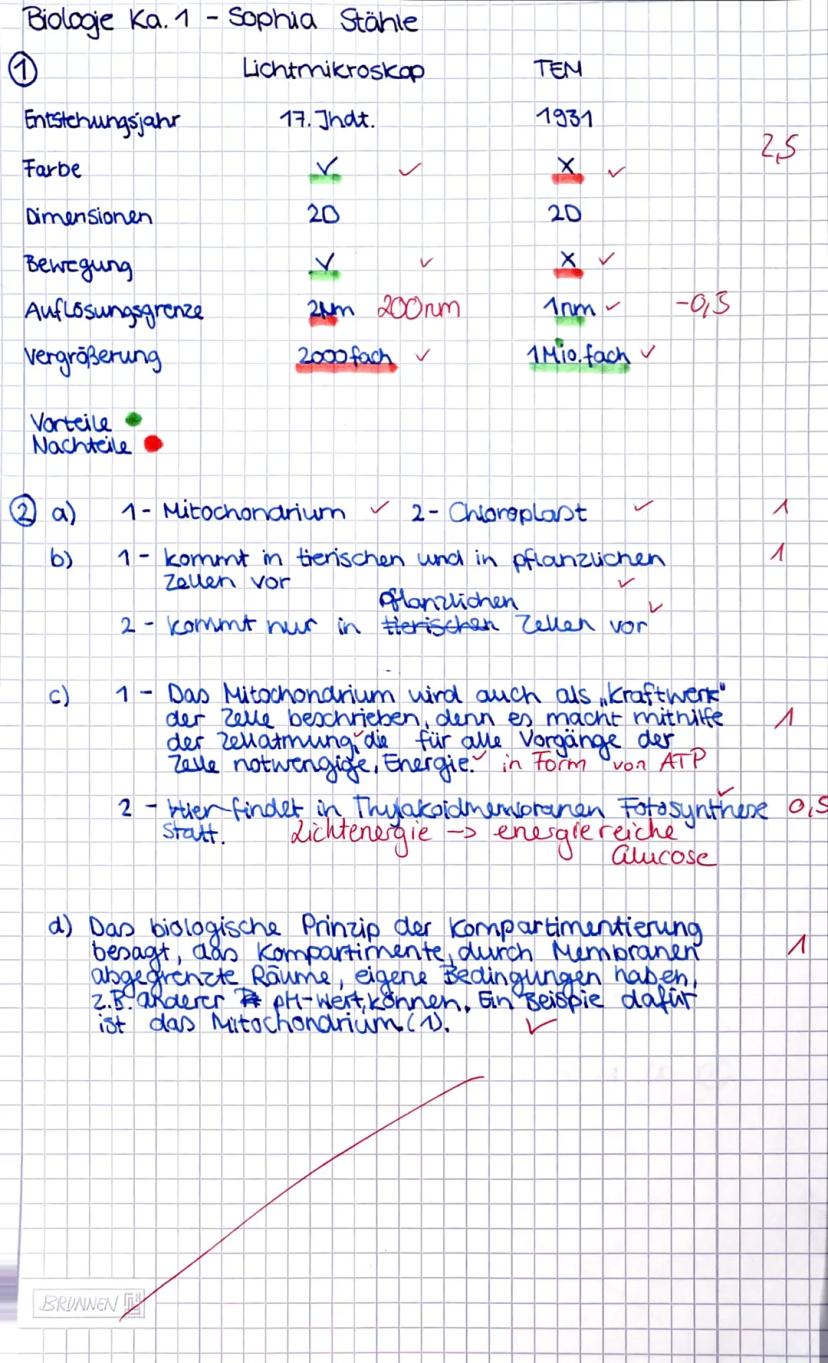 Biologie Ka. 1 - Sophia Stähle
① Lichtmikroskop TEM
Entstehungsjahr 17. Jhdt. 1931
2,5
Farbe ✓ ✓ X ✓
Dimensionen 2D 2D
Bewegung ✓ ✓ X ✓
Auflösungsgrenze 200nm 1nm ✓ -0,5
Vergrößerung 2000fach ✓ 1Mio.fach ✓
Vorteile
Nachteile
② a) 1- Mitochondrium ✓ 2- Chloroplast ✓ 1
b) 1- kommt in tierischen und in pflanzlichen 1
Zellen vor ✓
pflanzlichen ✓
2 - kommt nur in tierischen Zellen vor
c) 1 - Das Mitochondrium wird auch als „Kraftwerk"
der Zelle beschrieben, denn es macht mithilfe 1
der Zellatmung, die für alle Vorgänge der
Zelle notwengige, Energie. ✓ in Form von ATP
2 - Hier findet in Thylakoidmembranen Fotosynthese 0,5
statt. Lichtenergie -> energiereiche
Glucose
d) Das biologische Prinzip der Kompartimentierung
besagt, das Kompartimente, durch Membranen 1
abgegrenzte Räume, eigene Bedingungen haben,
z.B. anderer pH-Wert, können. Ein Beispie dafür
ist das Mitochondrium (1). ✓
BRUNNEN